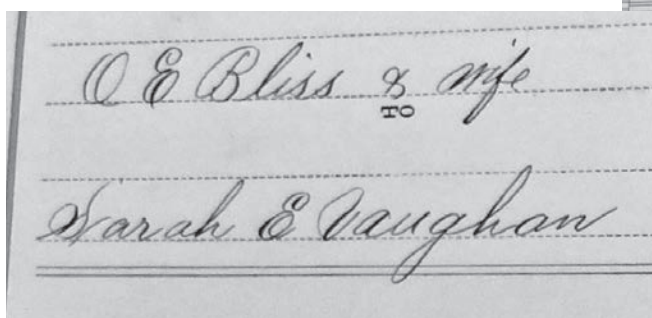 O E Bliss & wife
TO
Sarah E Vaughan